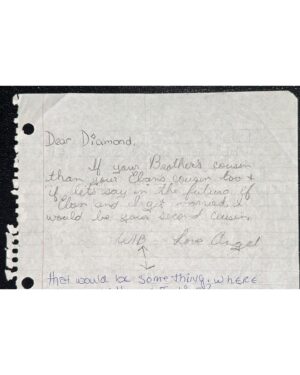 Dear Diamond,
If your Brother's cousin
than your Ebans cousin too &
if let's say in the future if
Eban and I get married I
would be your second cousin
W/B Love Angel
that would be something, WHERE